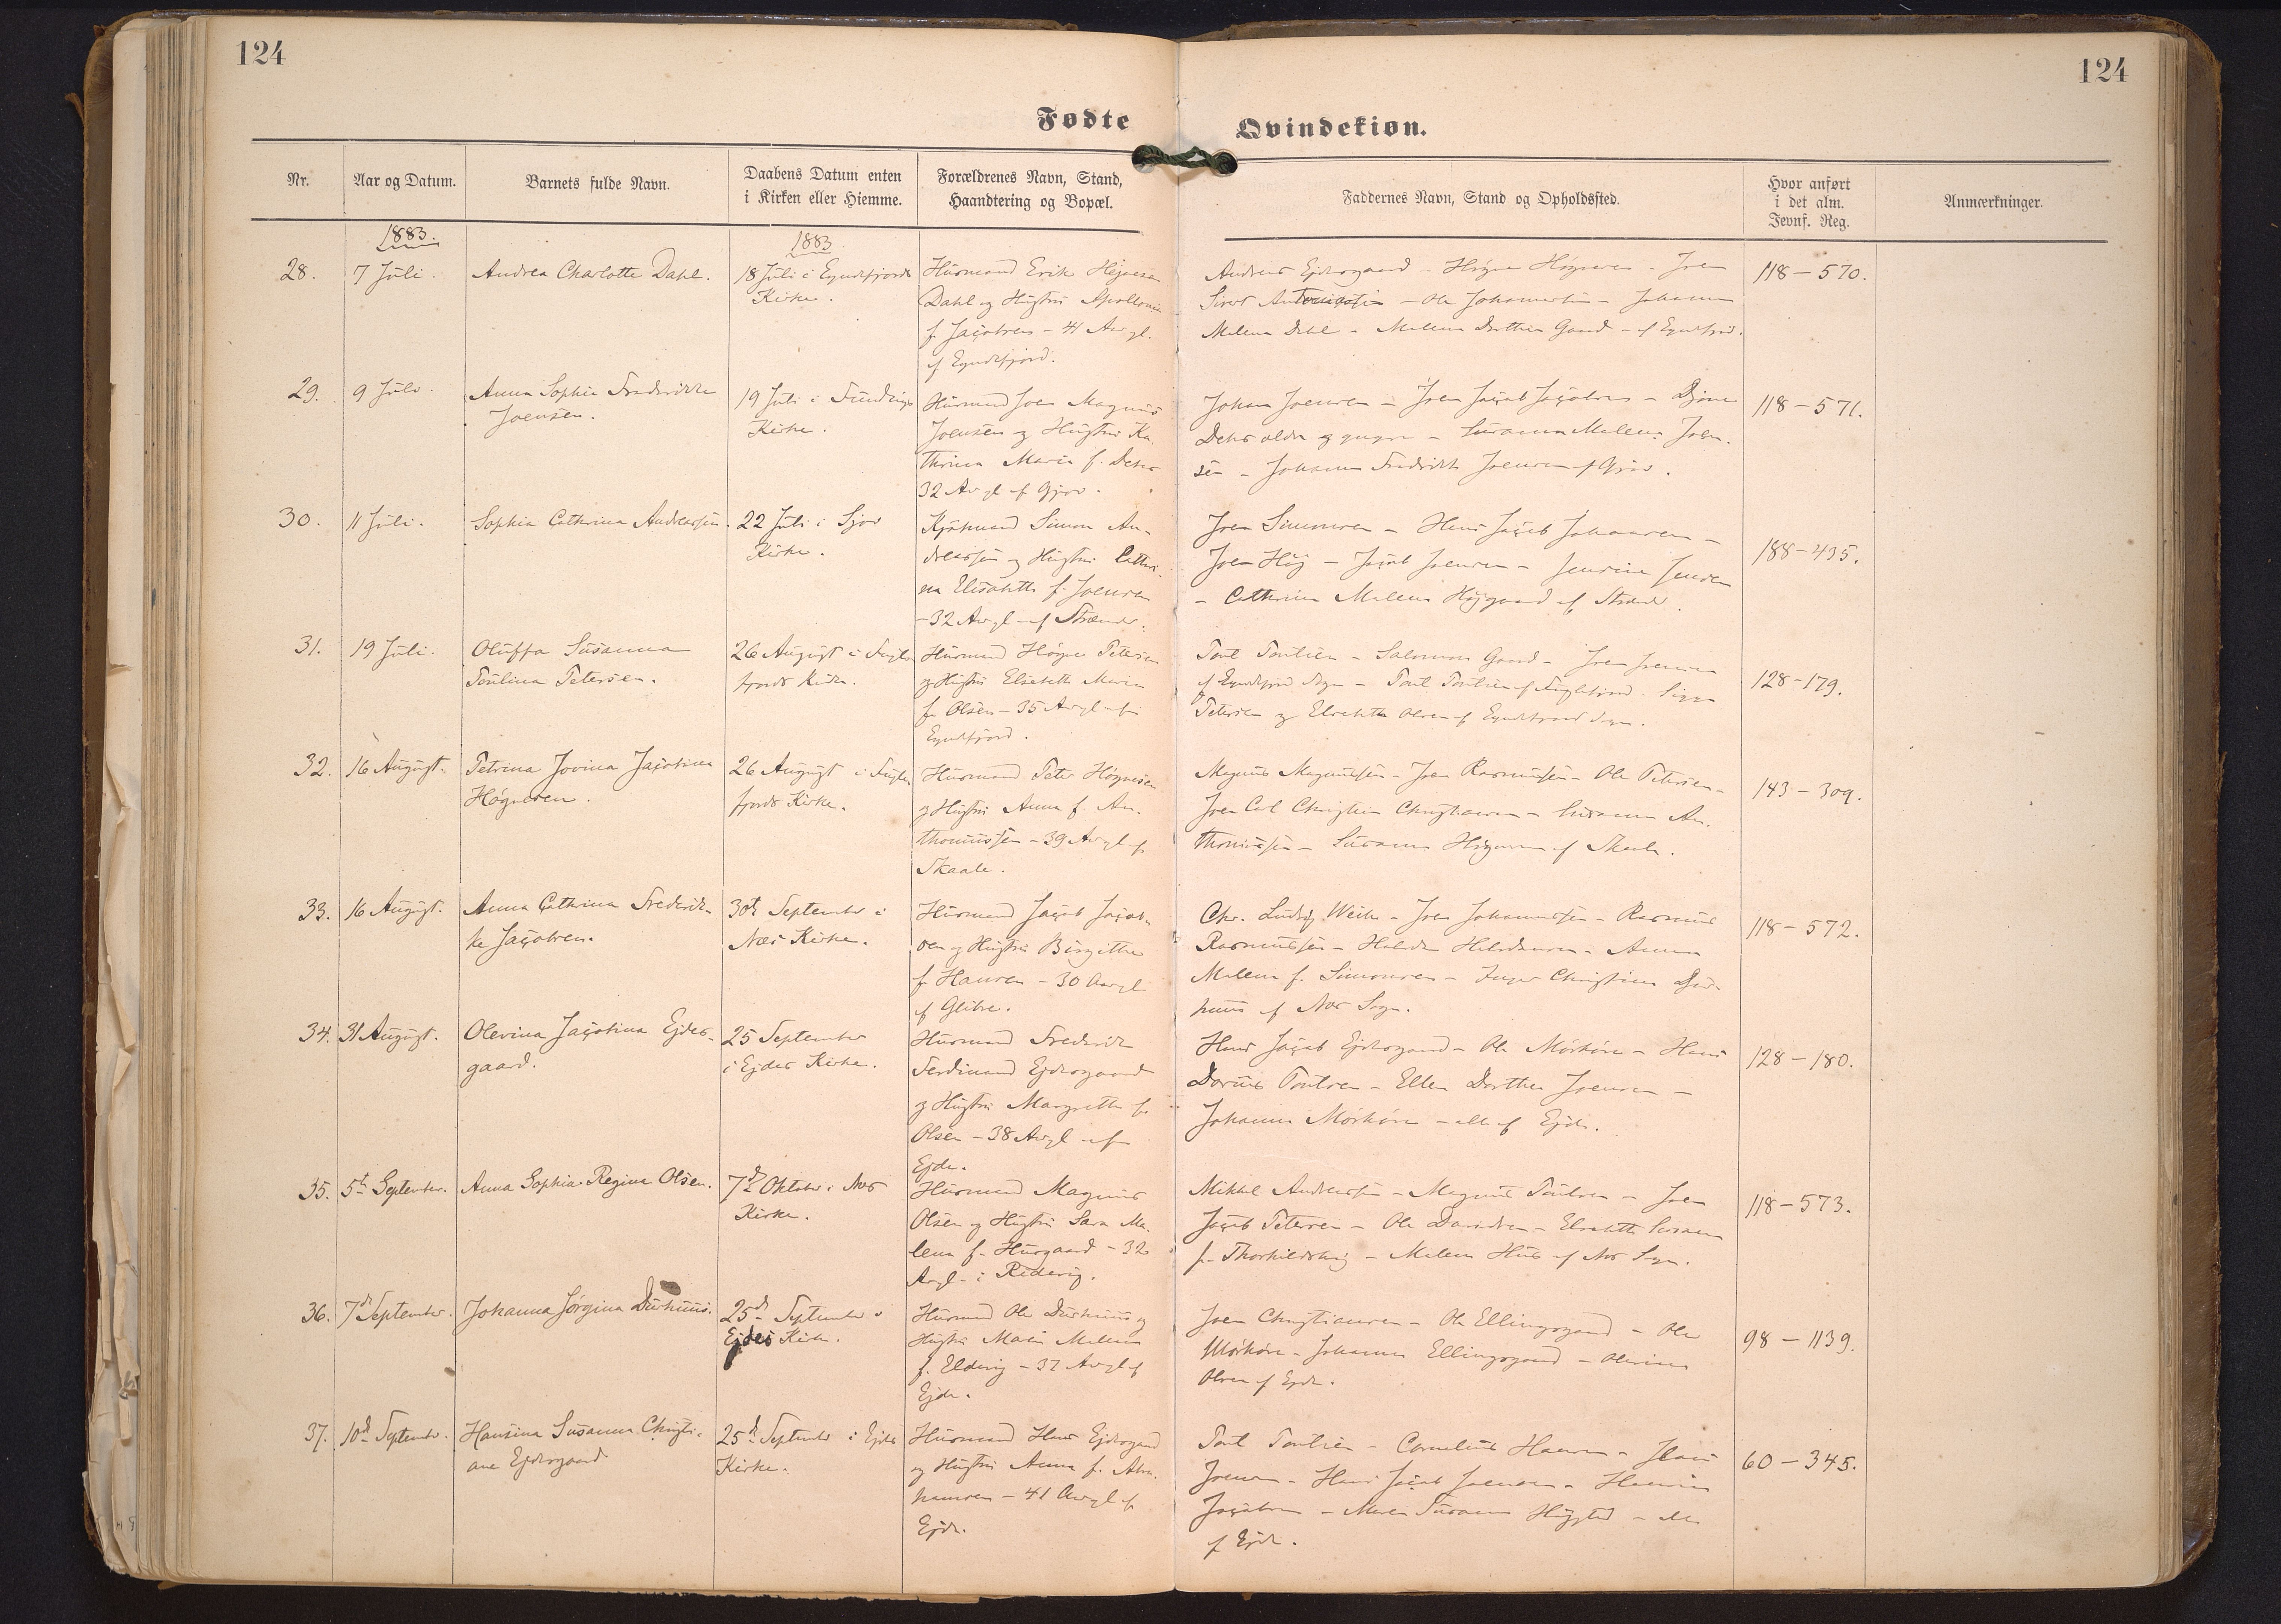 124
124
Fødte
Qvindekiøn.
Nr.
Aar og Datum.
Barnets fulde Navn.
Daabens Datum enten
i Kirken eller Hiemme.
Forældrenes Navn, Stand,
Haandtering og Bopæl.
Faddernes Navn, Stand og Opholdssted.
Hvor anført
i det alm.
Jevnf. Reg.
Anmærkninger.
1883.
1883
28.
7 Juli.
Andrea Charlotte Dahl.
18 Juli i Ejndefjords
Kirke.
Husmand Erik
Dahl og Hustru Apollonia
f. Jacobsen - 41 Aar gl.
af Ejndefjord.
Andreas Ejdesgaard - Høgne Høgnesen - Joen
Sivert Antoniussen - Ole Johannessen - Johanne
Malene Dahl - Malene Dorthea Gaard - af Ejndefjord.
118-570.
29.
9 Juli.
Anna Sophia Frederikke
Joensen.
19 Juli i Fundings
Kirke.
Husmand Joen Magnus
Joensen og Hustru Ka-
thrina Maria f.
32 Aar gl af Gjov.
Johan Joensen - Joen Jacob Jacobsen -
ældre og yngre - Susanna Malene Joen-
sen - Johanne Fredrikke Joensen af Gjov.
118-571.
30.
11 Juli.
Sophia Cathrina Andreassen.
22 Juli i
Kirke.
Simon An-
dreassen og Hustru Cathri-
na Elisabeth f. Joensen
-32 Aar gl - af
Joen Simonsen - Hans Jacob Johansen -
Joen Høj - Jacob Joensen - Jensine Jensen
- Cathrina Malene Højgaard af
188-435.
31.
19 Juli.
Oluffa Susanna
Poulina Petersen.
26 August i Fugle
fjords Kirke.
Husmand Høgne Petersen
og Hustru Elsebeth Maria
f. Olsen - 35 Aar gl af
Ejndefjord.
Poul Poulsen - Salomon Gaard - Joen Joensen
af Ejndefjord Sogn - Poul Poulsen af Fuglefjord.
Petersen og Elsebeth Olsen af Ejndefjord Sogn.
128-179.
32.
16 August.
Petrina Jovina Jacobina
Høgnesen.
26 August i Fugle
fjords Kirke.
Husmand Peter Høgnesen
og Hustru Anna f. An-
thoniussen - 39 Aar gl af
Skaale.
Magnus Magnussen - Joen Rasmussen - Ole Petersen -
Joen Carl Christian Christiansen - Susanna An-
thoniussen - Susanna Høgnesen af Skaale.
143-309.
33.
16 August.
Anna Cathrina Frederik-
ke Jacobsen.
30te September i
Næs Kirke.
Husmand Jacob Jacob-
sen og Hustru Birgitha
f. Hansen - 30 Aar gl
af Glibre.
Chr. Ludvig Weihe - Joen Johannessen - Rasmus
Rasmussen - Anna
Malena f. Simonsen - Inger Christina Djur-
huus af Næs Sogn.
118-572.
34.
31 August.
Olevina Jacobina Ejdes-
gaard.
25 September
i Ejdes Kirke.
Husmand Frederik
Ferdinand Ejdesgaard
og Hustru Margrethe f.
Olsen - 38 Aar gl af
Ejde.
Hans Jacob Ejdesgaard - Ole Mørkøre - Hans
Poulsen - Ellen Dorthea Joensen -
Johanne Mørkøre - alle af Ejde.
128-180.
35.
5te September.
Anna Sophia Regina Olsen.
7de Oktober i Næs
Kirke.
Husmand Magnus
Olsen og Hustru Sara Ma-
lena f. Husgaard - 32
Aar gl. i Ridevig.
Mikkel Andreassen - Magnus Poulsen - Joen
Jacob Petersen - Ole Davidsen - Elsebeth Susanna
f. - Malene Huus af Næs Sogn.
118-573.
36.
7de September.
Johanna Jørgina Durhuus.
25de September i
Ejdes Kirke.
Husmand Ole Durhuus og
Hustru Maria Malena
f. Eldevig - 37 Aar gl af
Ejde.
Joen Christiansen - Ole Ellingsgaard - Ole
Mørkøre - Johanna Ellingsgaard - Olevina
Olsen af Ejde.
98-1139.
37.
10de September.
Hansina Susanna Christi-
ane Ejdesgaard
25de September i Ejdes
Kirke.
Husmand Hans Ejdesgaard
og Hustru Anna f. Abra-
hamsen - 41 Aar gl af
Ejde.
Poul Poulsen - Cornelius Hansen - Hans
Joensen - Hans Jacob Joensen - Hansina
Jacobsen - Maren Susanne - alle
af Ejde.
60-345.